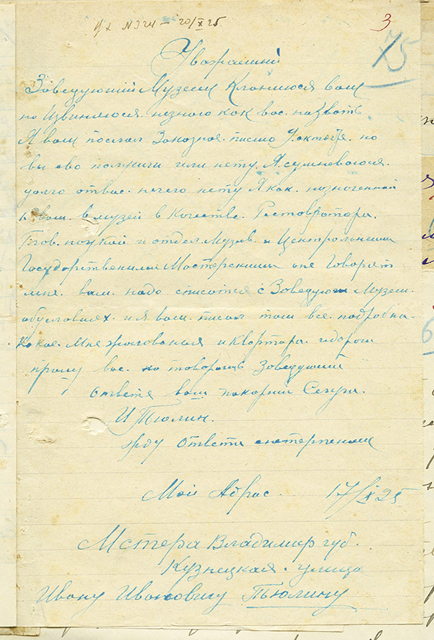 3
75
Уважаемий
Заведующий Музеем Кланяюся вам
но Извиняюся незнаю как вас назвать
Я вам послал Заказное писмо 7 октября но
вы ево получили или нету Я сумневаюся
долго отвас нечего нету Я как назначенной
к вам в музей в Качестве Реставратора
Глав. наукай и отдел Музев и Центральными
Государственыме Мастерскими оне Говорят
мне вам надо списатся с Заведую Музеи
обусловиях и я вам писал там все подробна
Какое Мне жалования и квартира
прашу вас но товарищ Заведующий
Ответя вам покорни Слуга
И Тюлин.
жду Ответа снетерпением
Мой Адрес. 17/X 25
Мстера Владимир губ.
Кузнецкая улица
Ивану Ивановичу Тьюлину